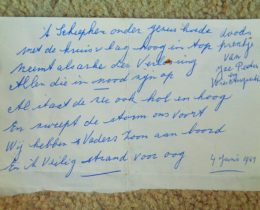 'k Scheepken onder Jezus hoede
met de kruisvlag hoog in top
Neemt als arke der Verlossing
Allen die in nood zijn op
Al staat de zee ook hol en hoog
En zweept de storm ons voort
Wij hebben 's Vaders Zoon aan boord
En 't Veilig strand voor oog
doods
prentje
van
4 Juni 1969